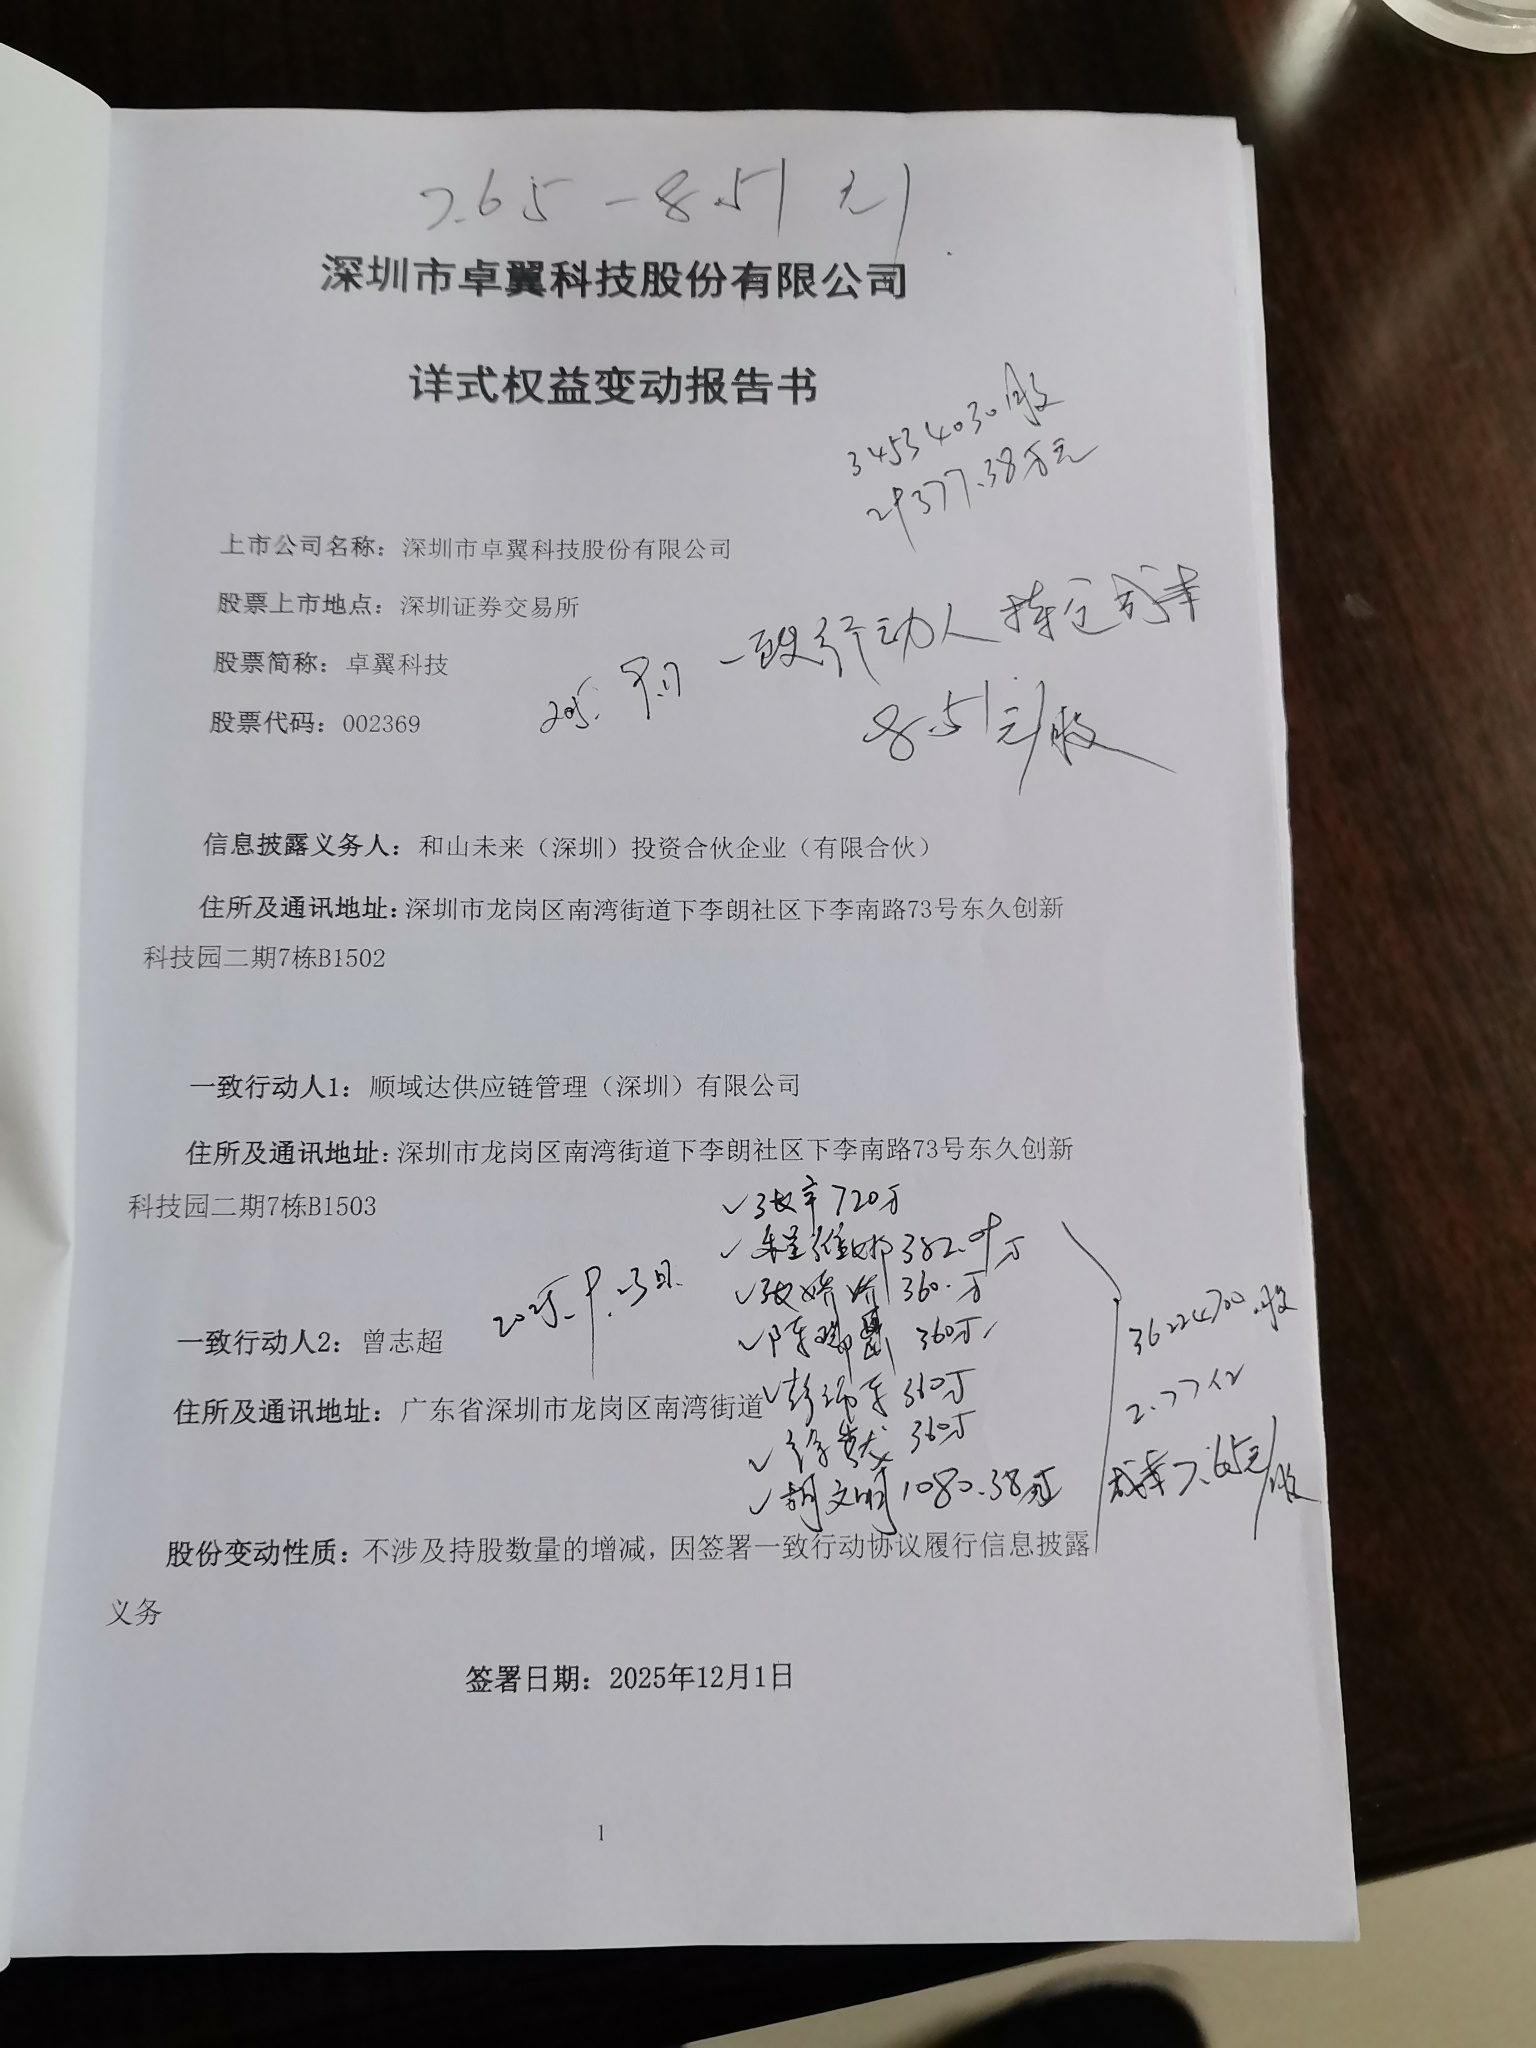 7.65-8.51元/
深圳市卓翼科技股份有限公司
详式权益变动报告书
34534030股
29377.38万元
上市公司名称：深圳市卓翼科技股份有限公司
股票上市地点：深圳证券交易所
股票简称：卓翼科技
一致行动人持仓成本
股票代码：002369
8.51元/股
信息披露义务人：和山未来（深圳）投资合伙企业（有限合伙）
住所及通讯地址：深圳市龙岗区南湾街道下李朗社区下李南路73号东久创新
科技园二期7栋B1502
一致行动人1：顺域达供应链管理（深圳）有限公司
住所及通讯地址：深圳市龙岗区南湾街道下李朗社区下李南路73号东久创新
科技园二期7栋B1503
✓720万
✓382.09万
✓张娇娇 360.万
✓陈 360万
一致行动人2：曾志超
✓彭 360万
住所及通讯地址：广东省深圳市龙岗区南湾街道
✓徐 360万
✓胡文明 1080.38万
36224700股
2.77亿
成本7.65元/股
股份变动性质：不涉及持股数量的增减，因签署一致行动协议履行信息披露
义务
签署日期：2025年12月1日
1